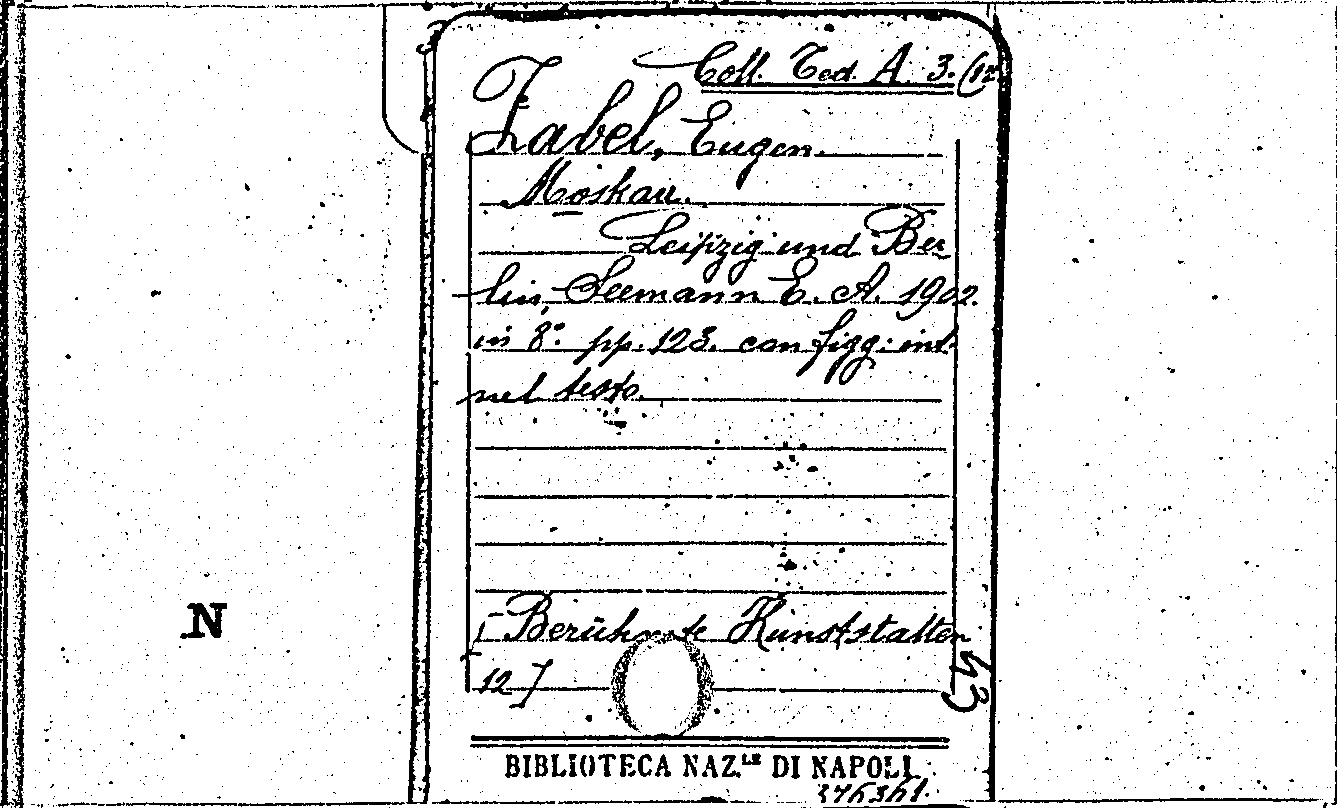 Coll. Ted. A. 3. (12
Zabel, Eugen.
Moskau.
Leipzig und Ber
lin, Seemann E. A. 1902.
in 8.° pp. 123. con figg: int.
nel testo.
[Berühmte Kunststätten
12]
43
N
BIBLIOTECA NAZ.LE DI NAPOLI